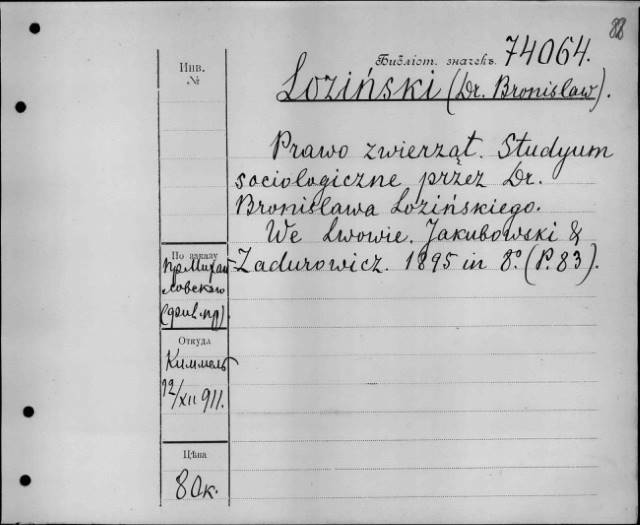 88
Библіот. значекъ 74064.
Инв.
№
Loziński (Dr. Bronisław).
Prawo zwierząt. Studyum
sociologiczne przez Dr.
Bronisława Lozińskiego.
We Lwowie. Jakubowski &
Zadurowicz. 1895 in 8º. (P. 83).
По заказу
пр. Михай-
ловскаго
Откуда
Киммель
12/XII 911.
Цѣна
80к.